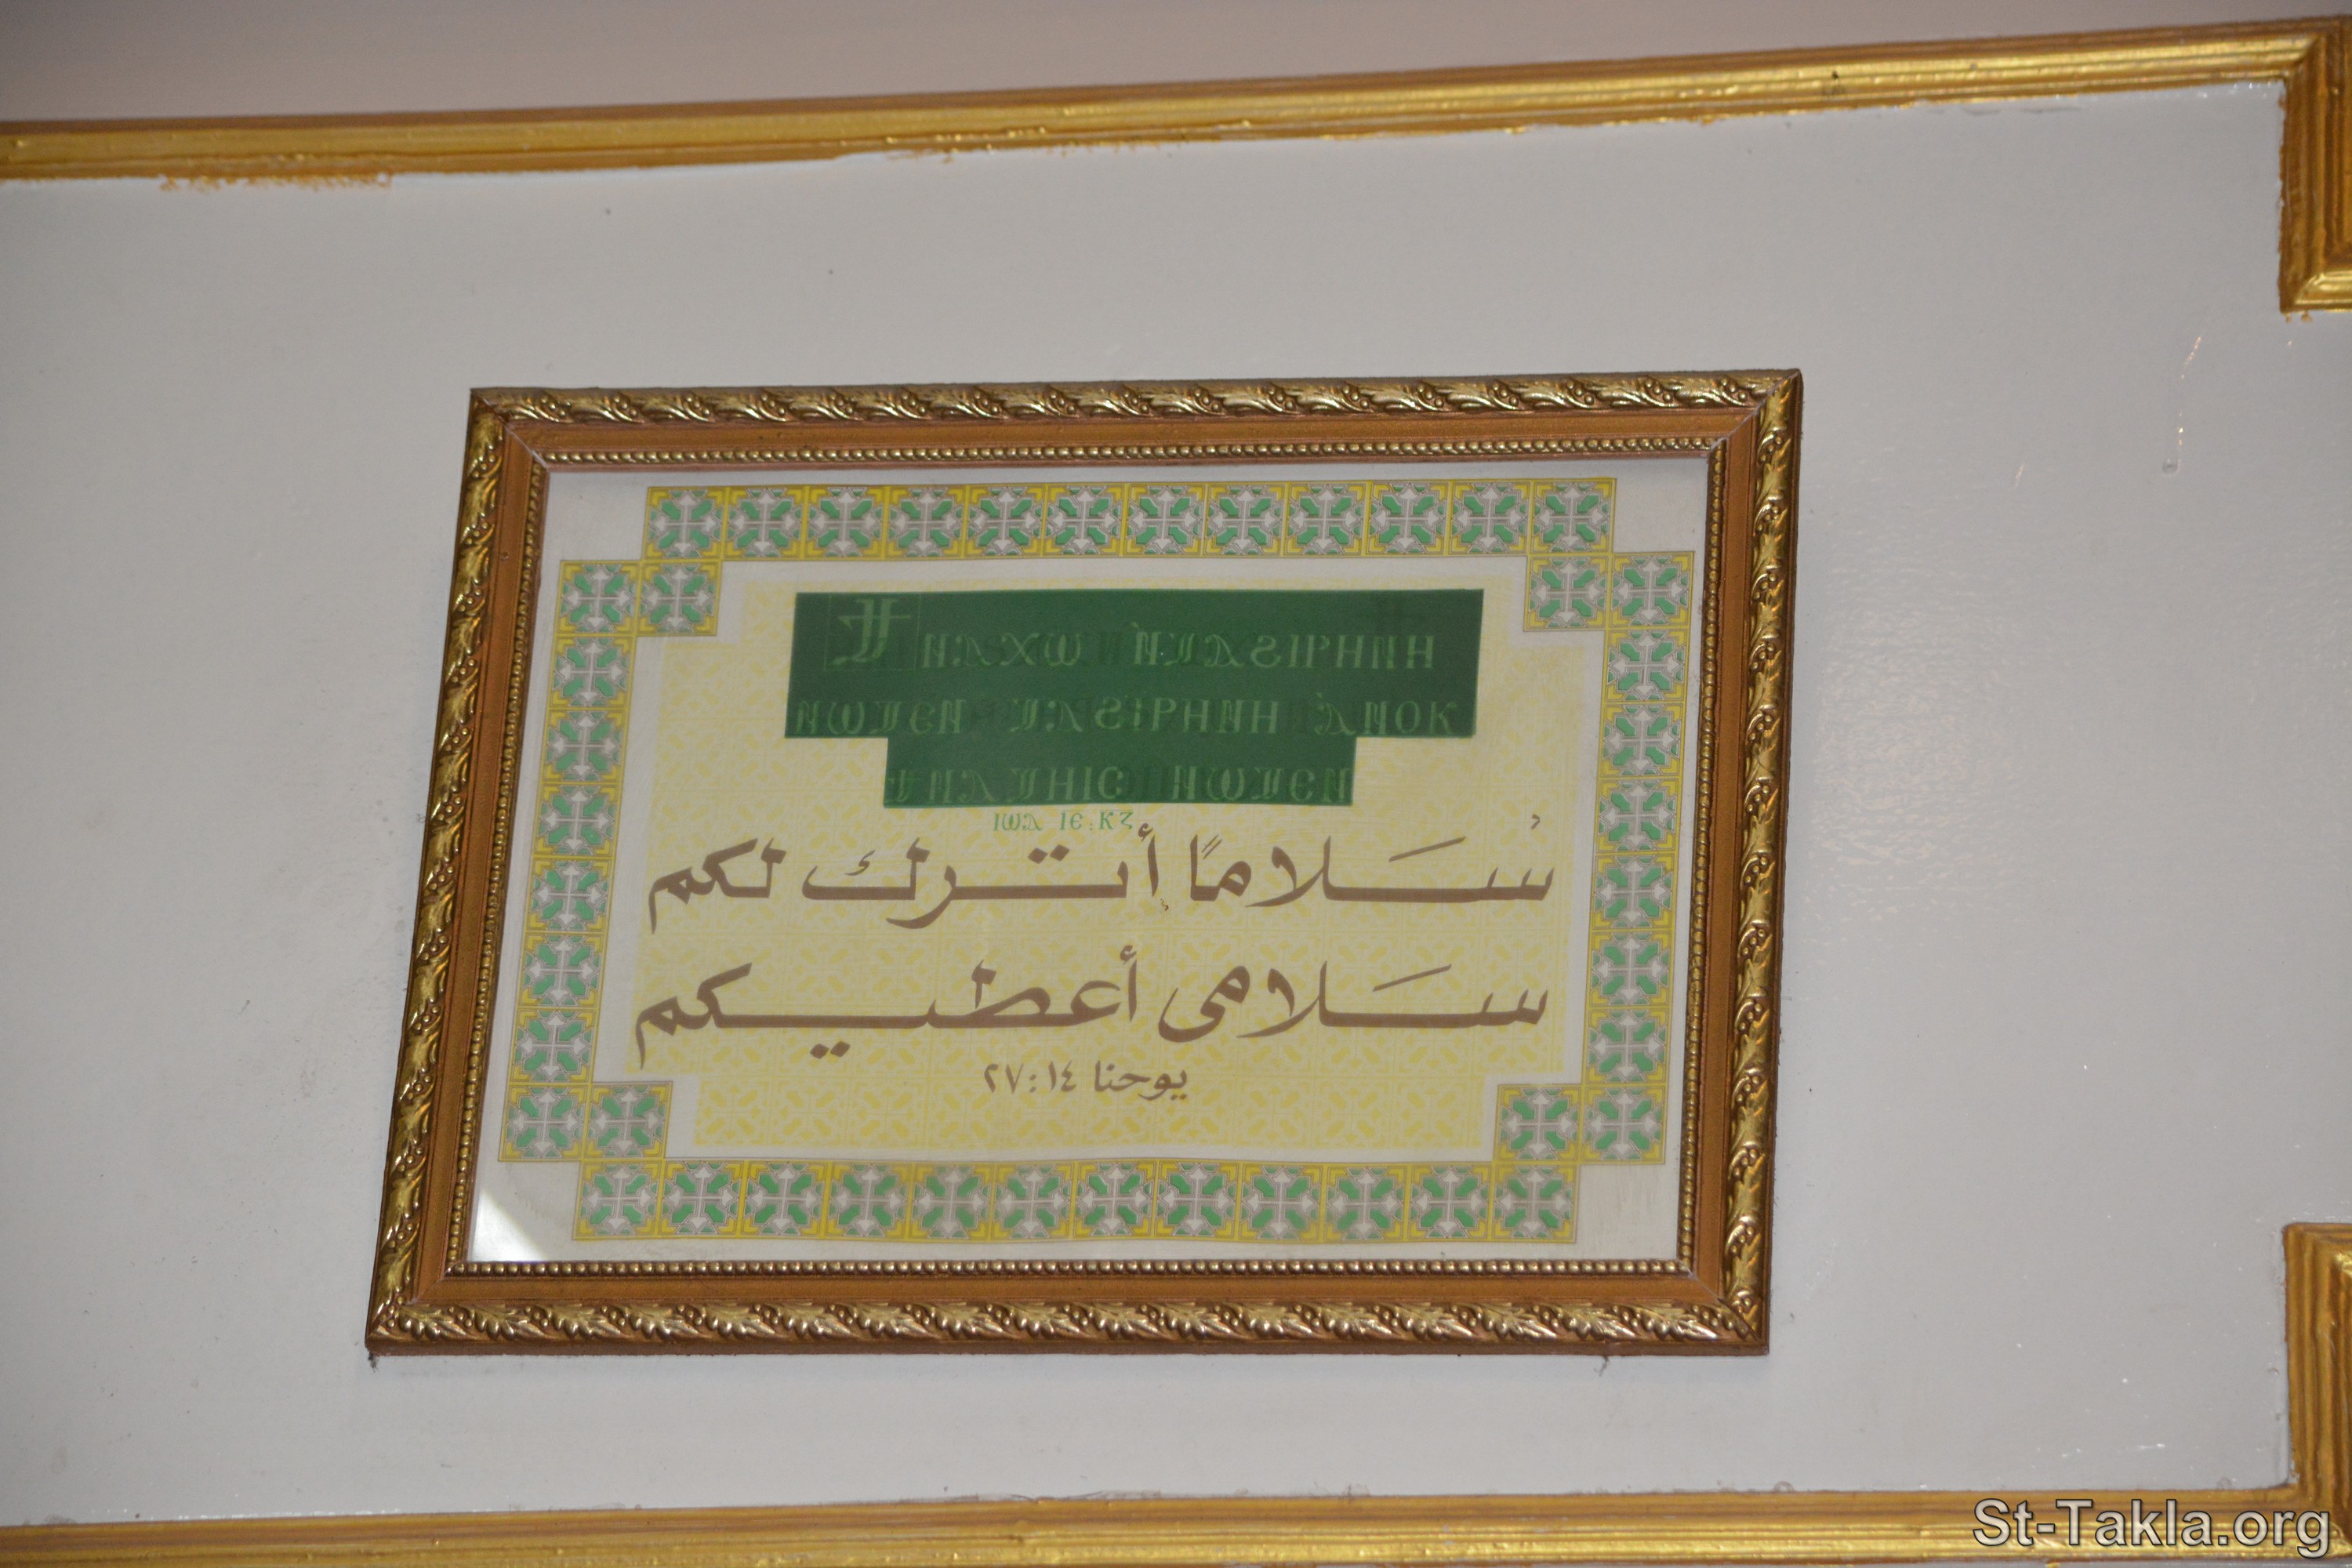 Ϯⲛⲁⲭⲱ ⲛ̀ⲧⲁϩⲓⲣⲏⲛⲏ
ⲛⲱⲧⲉⲛ ⲧⲁϩⲓⲣⲏⲛⲏ ⲁ̀ⲛⲟⲕ
ϯⲛⲁⲧⲏⲓⲥ ⲛⲱⲧⲉⲛ
ⲓⲱⲁ ⲓⲉ:ⲕⲍ
سَلامًا أترك لكم
سَلامى أعطيكم
يوحنا ١٤:٢٧
St-Takla.org